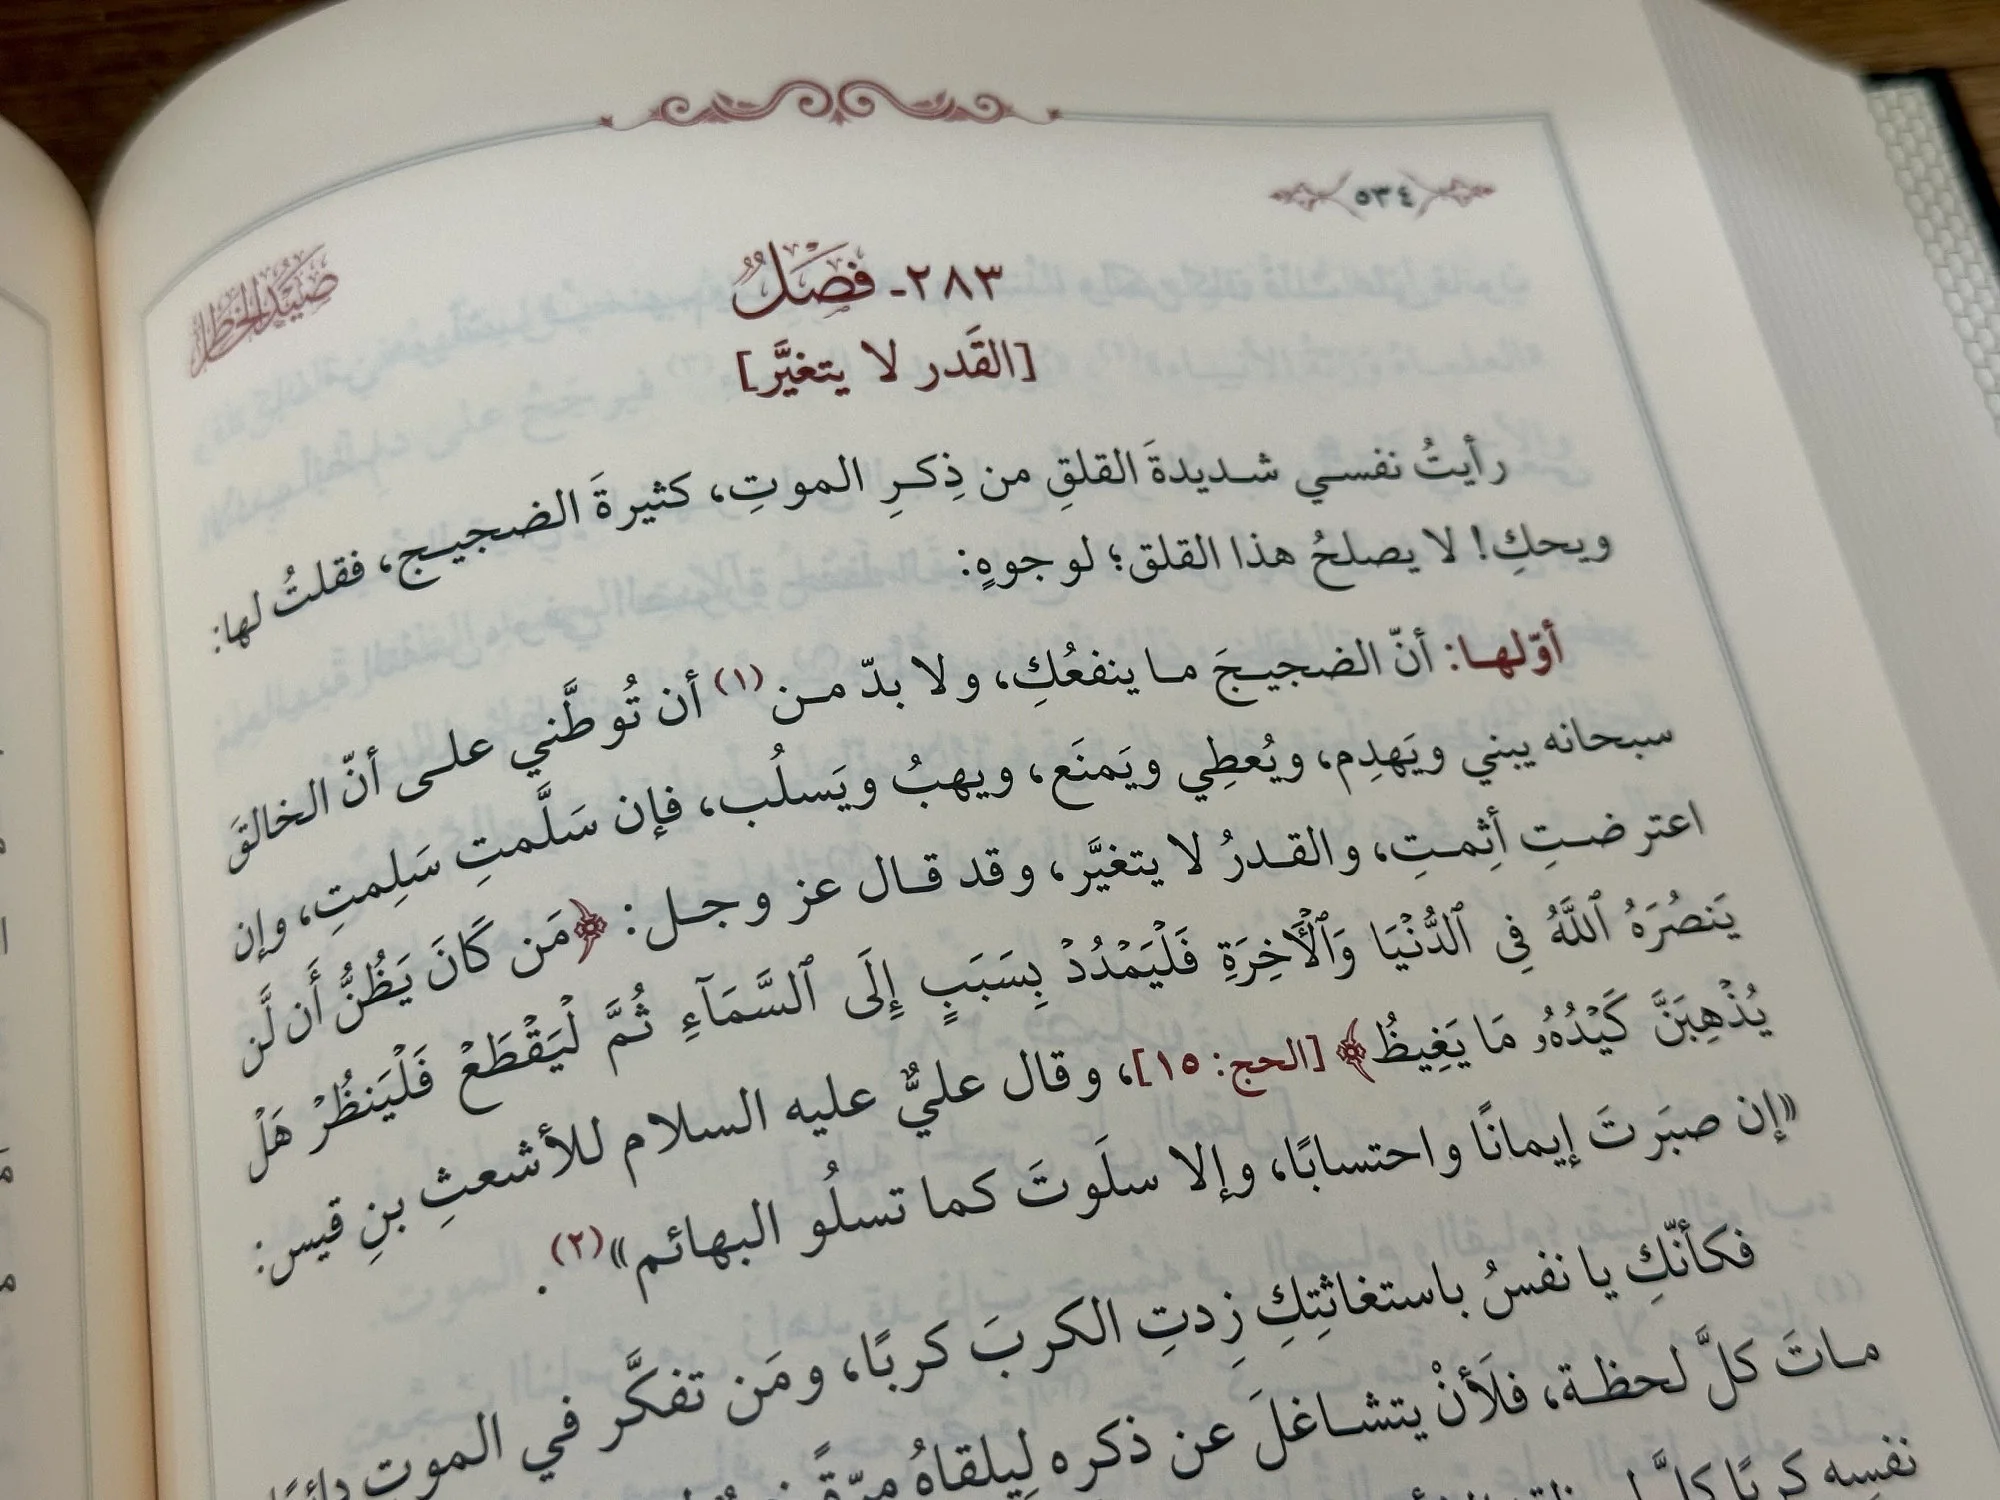 ٥٣٤
صيد الخاطر
٢٨٣- فَصْلٌ
[القَدر لا يتغيَّر]
رأيتُ نفسي شديدةَ القلقِ من ذِكرِ الموتِ، كثيرةَ الضجيج، فقلتُ لها:
ويحكِ! لا يصلحُ هذا القلق؛ لوجوهٍ:
أوّلها: أنّ الضجيجَ ما ينفعُكِ، ولا بدّ من(١) أن تُوطَّني على أنّ الخالقَ
سبحانه يبني ويَهدِم، ويُعطِي ويَمنَع، ويهبُ ويَسلُب، فإن سَلَّمتِ سَلِمتِ، وإن
اعترضتِ أَثِمتِ، والقدرُ لا يتغيَّر، وقد قال عز وجل: ﴿مَن كَانَ يَظُنُّ أَن لَّن
يَنصُرَهُ ٱللَّهُ فِى ٱلدُّنْيَا وَٱلْأَخِرَةِ فَلْيَمْدُدْ بِسَبَبٍ إِلَى ٱلسَّمَآءِ ثُمَّ لْيَقْطَعْ فَلْيَنظُرْ هَلْ
يُذْهِبَنَّ كَيْدُهُۥ مَا يَغِيظُ﴾ [الحج: ١٥]، وقال عليٌّ عليه السلام للأشعثِ بنِ قيس:
«إن صبَرتَ إيمانًا واحتسابًا، وإلا سلَوتَ كما تسلُو البهائم»(٢).
فكأنّكِ يا نفسُ باستغاثَتِكِ زِدتِ الكربَ كربًا، ومَن تفكَّر في الموتِ دائمًا
ماتَ كلَّ لحظة، فلَأنْ يتشاغلَ عن ذكره لِيلقاهُ مرّةً
نفسِه كربًا كلَّ